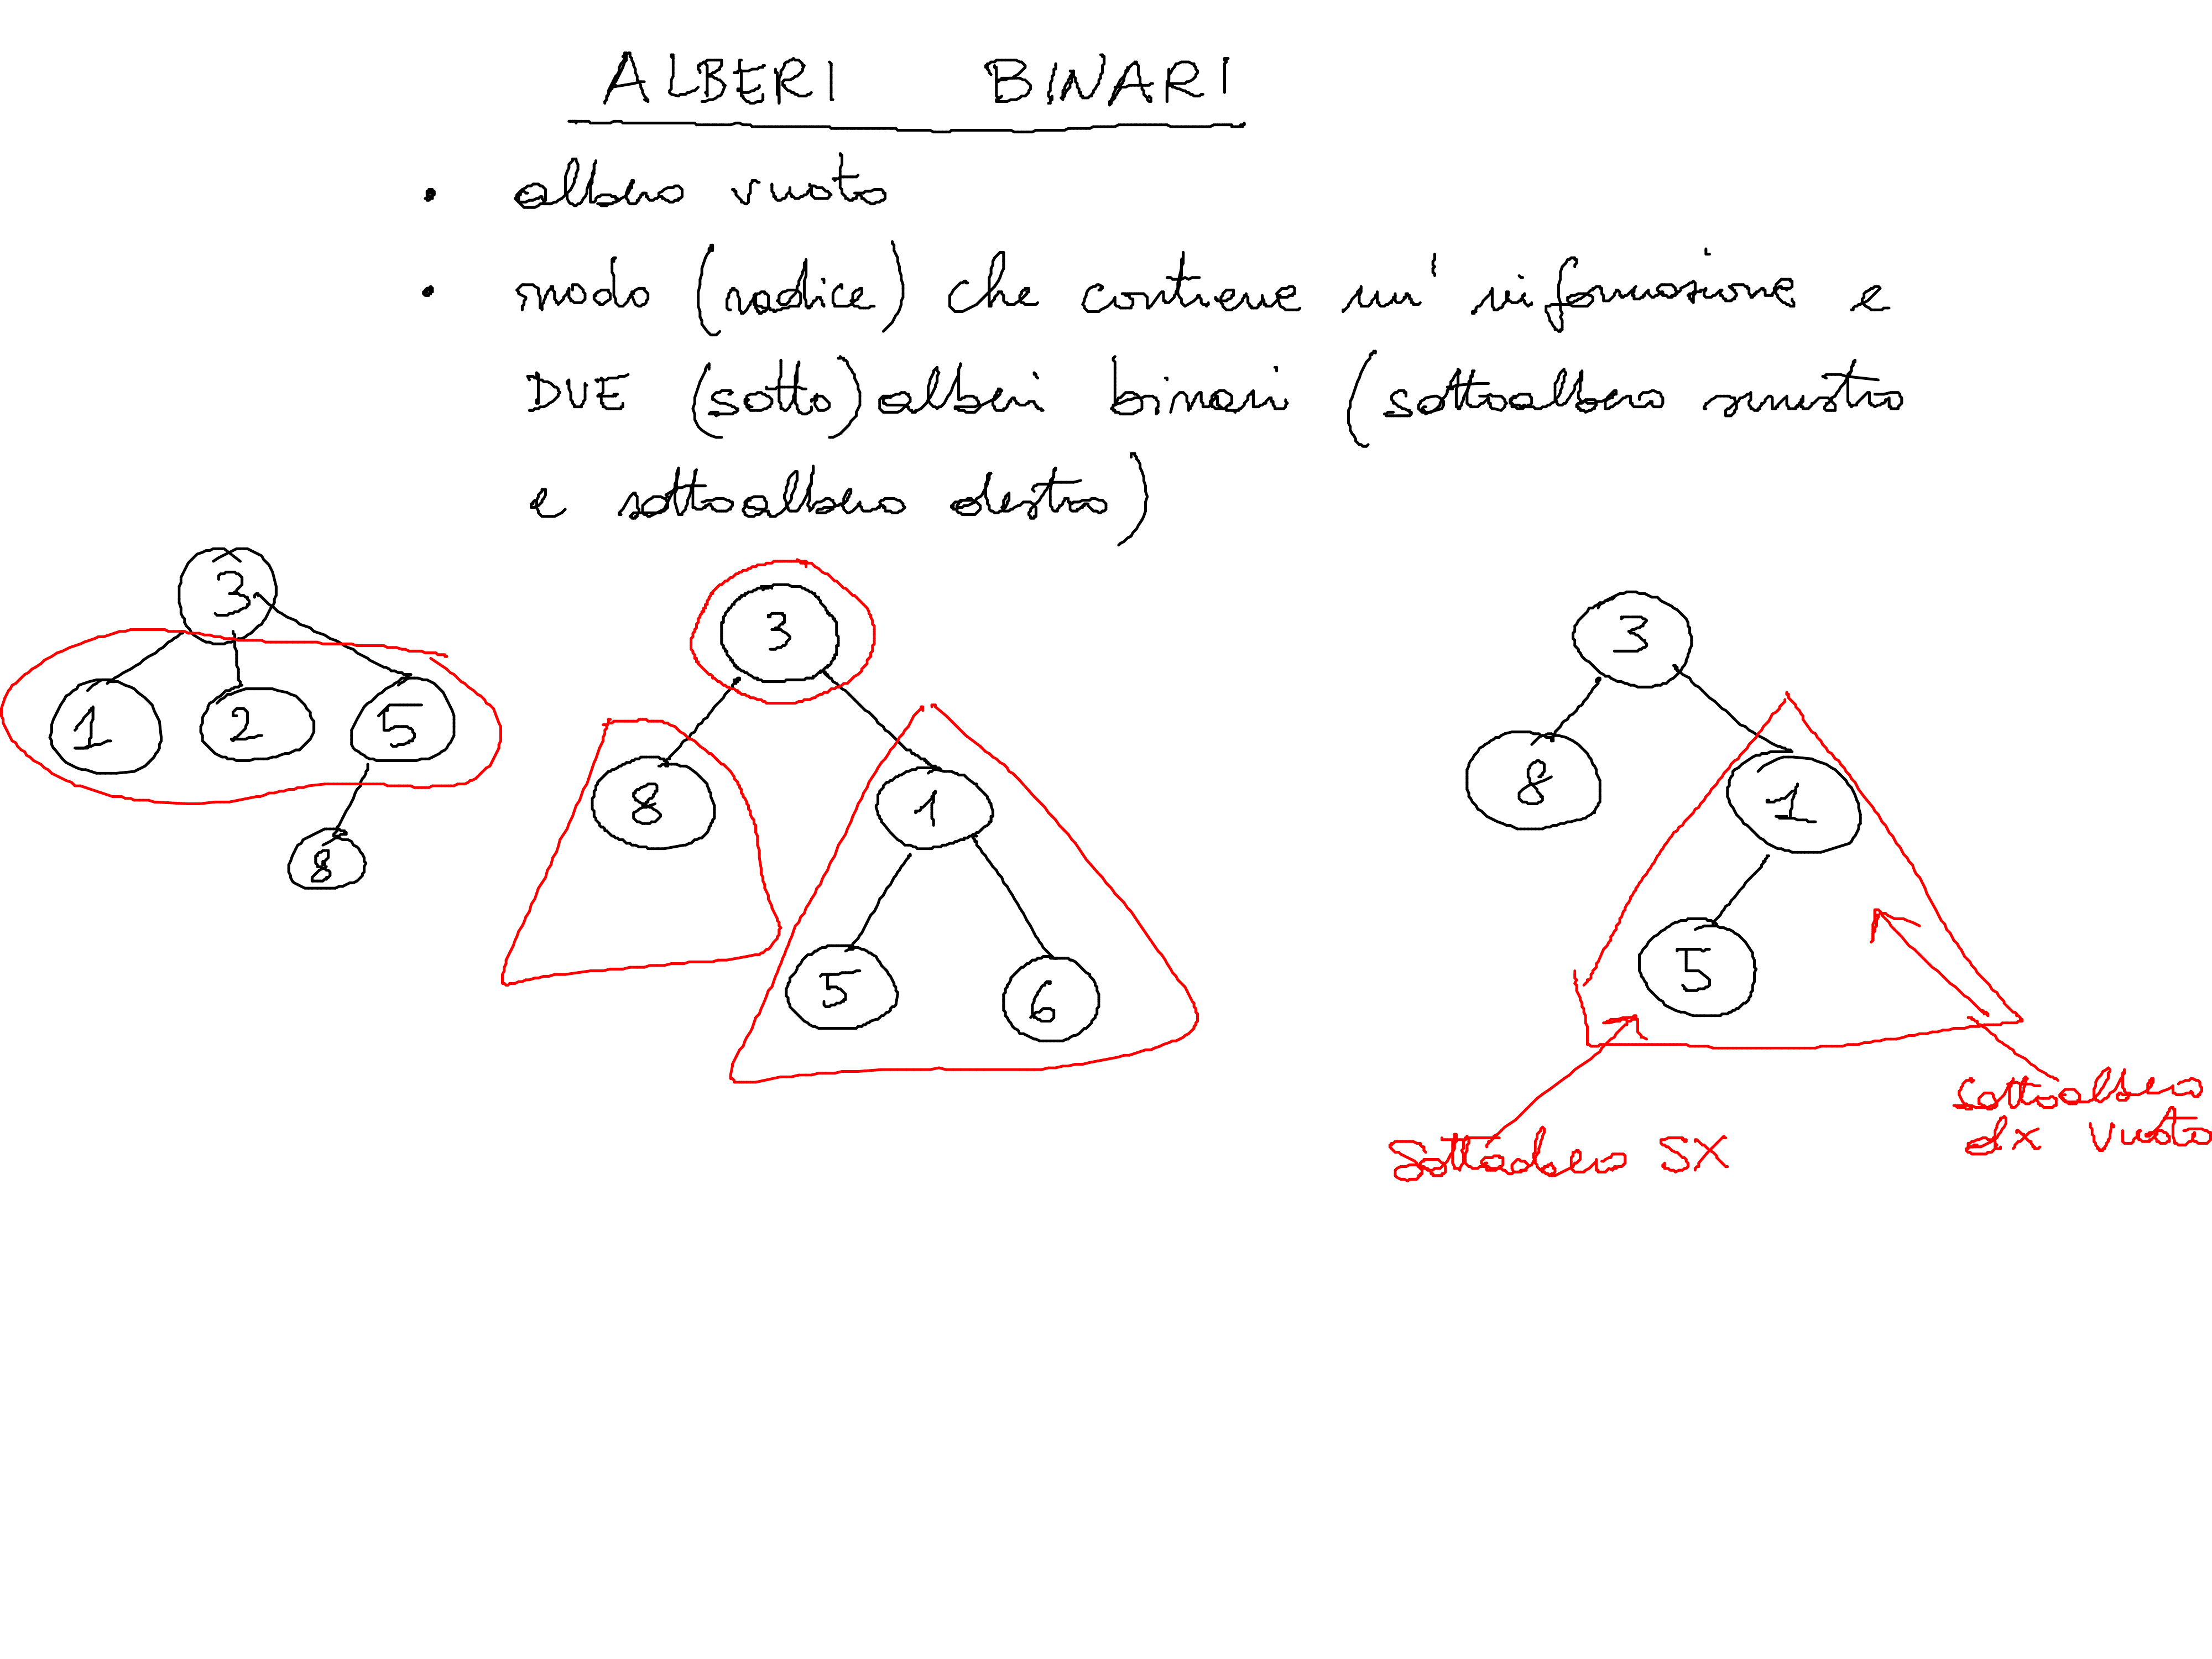 ALBERI BINARI
• albero vuoto
• nodo (radice) che contiene un' informazione e
DUE (sotto)alberi binari (sottoalbero sinistro
e sottoalbero destro)
3
1 2 5
8
3
8 1
5 6
3
8 1
5
sottoalbero SX
sottoalbero
dx vuoto